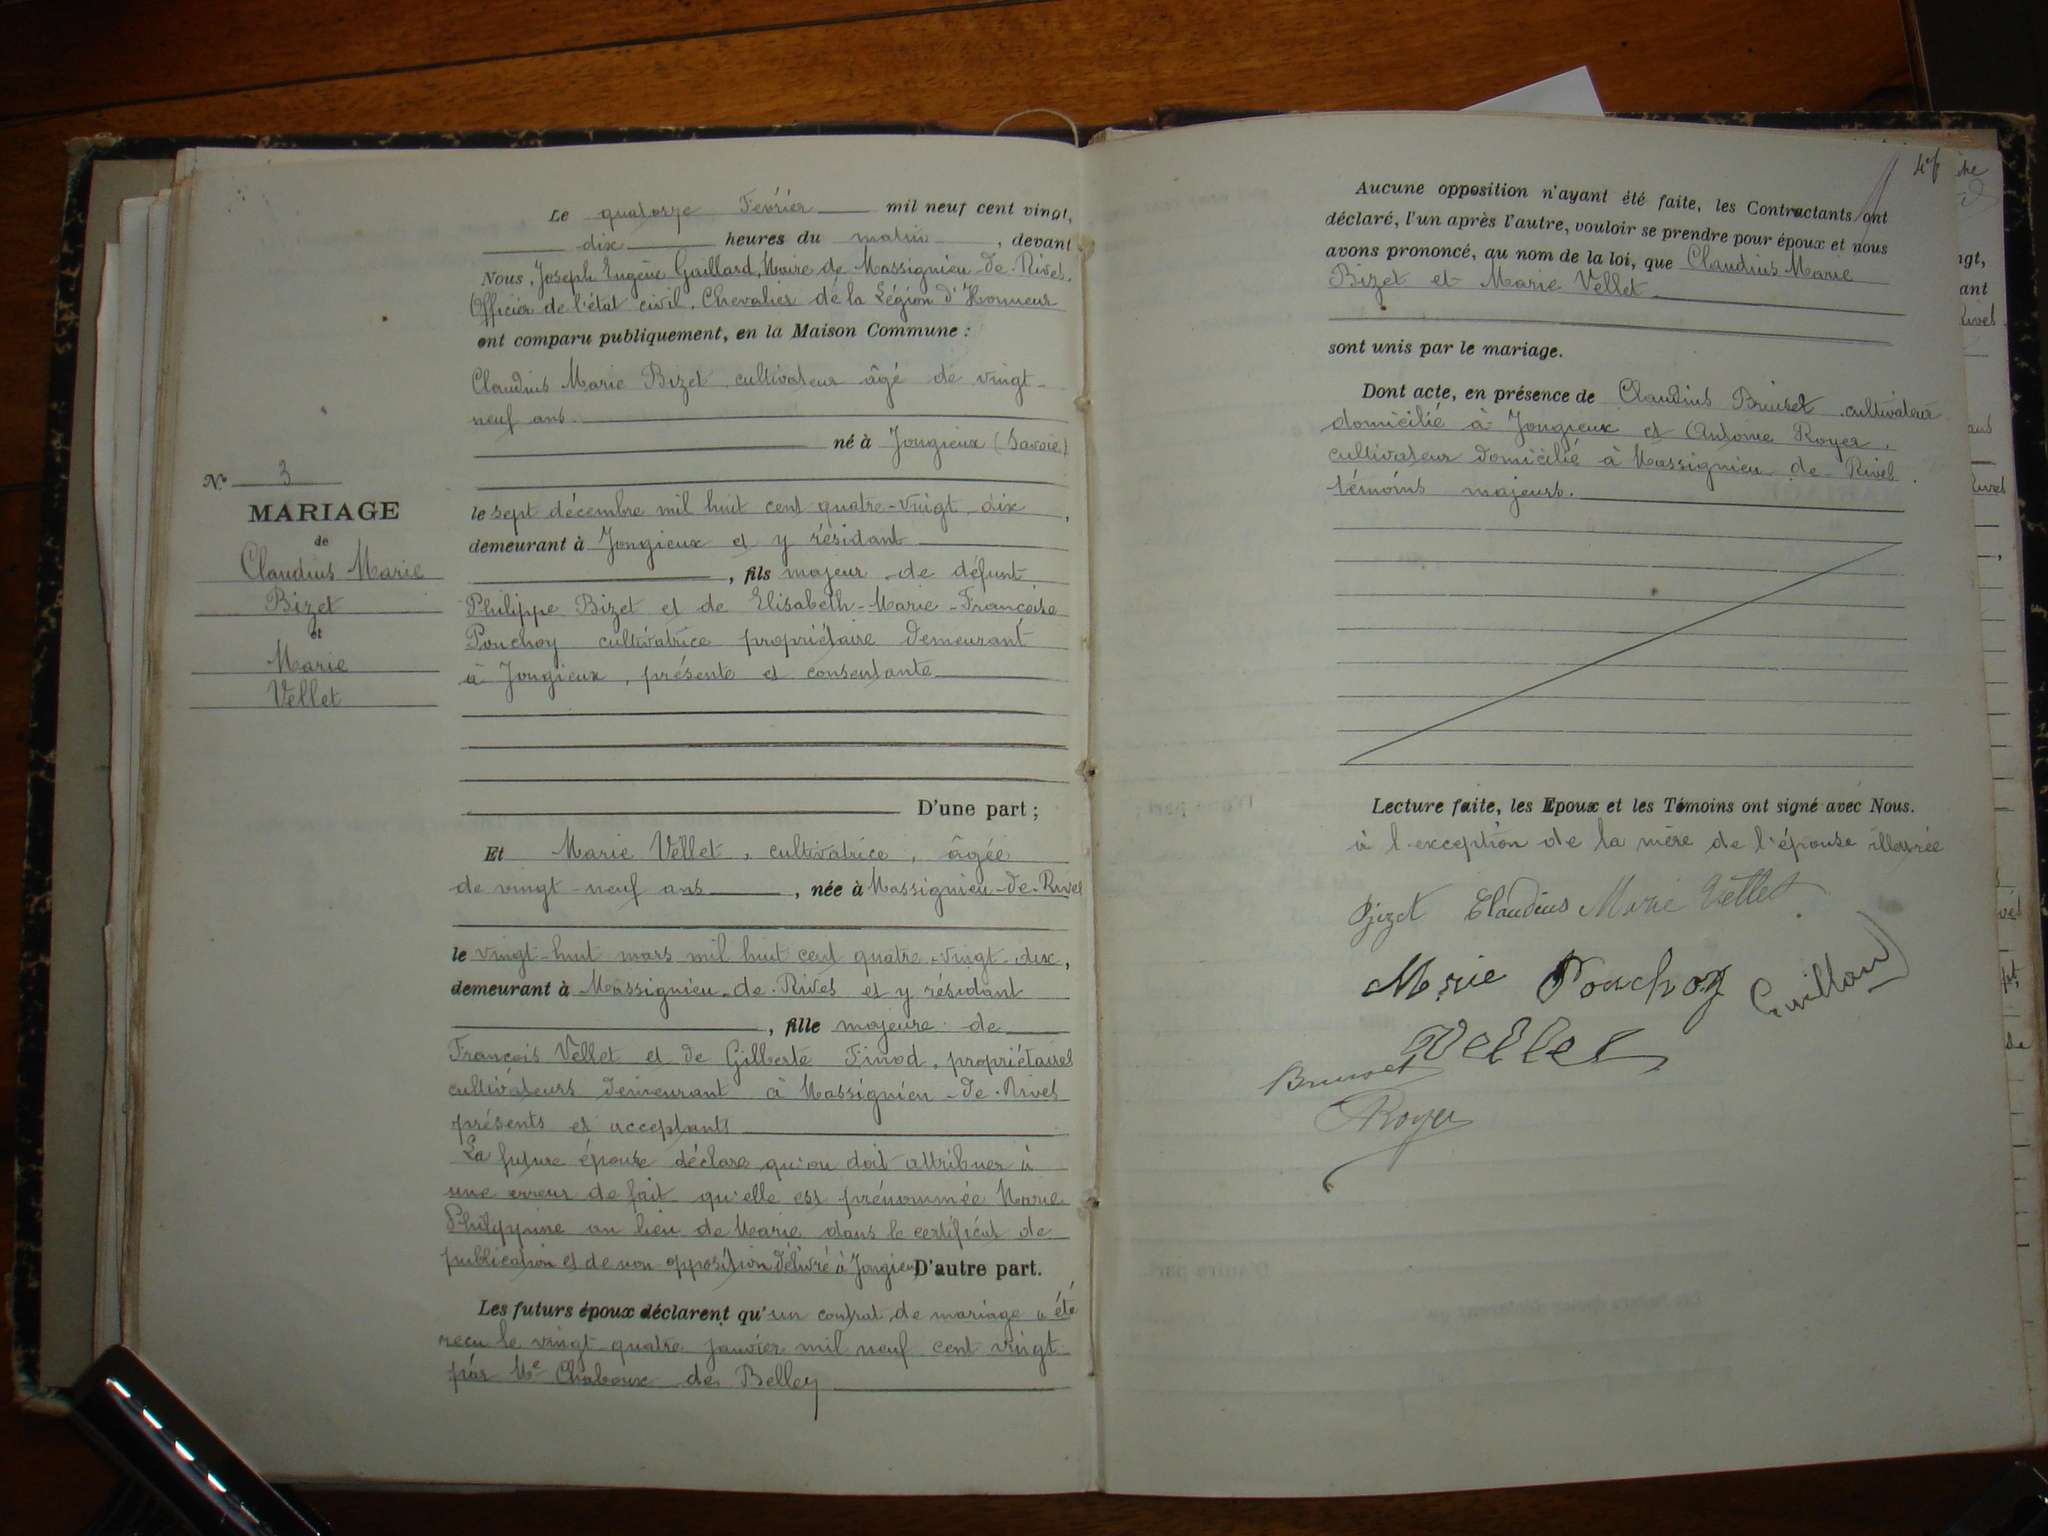 Le quatorze Février mil neuf cent vingt,
dix heures du matin, devant
Nous, Joseph Eugène Gaillard, Maire de Massignieu-de-Rives,
Officier de l'état civil, Chevalier de la Légion d'Honneur
ont comparu publiquement, en la Maison Commune :
Claudius Marie Bizet cultivateur âgé de vingt-
neuf ans
né à Jongieux (Savoie)
le sept décembre mil huit cent quatre-vingt dix,
demeurant à Jongieux et y résidant
, fils majeur de défunt
Philippe Bizet et de Elisabeth-Marie-Françoise
Pouchoy cultivatrice propriétaire demeurant
à Jongieux, présente et consentante
D'une part ;
N° 3
MARIAGE
de
Claudius Marie
Bizet
et
Marie
Vellet
Et Marie Vellet, cultivatrice, âgée
de vingt-neuf ans, née à Massignieu-de-Rives
le vingt-huit mars mil huit cent quatre-vingt-dix,
demeurant à Massignieu-de-Rives et y résidant
, fille majeure de
François Vellet et de Gilberte Finod, propriétaires
cultivateurs demeurant à Massignieu-de-Rives
présents et acceptants
La future épouse déclare qu'on doit attribuer à
une erreur de fait qu'elle est prénommée Marie
Philippine au lieu de Marie dans le certificat de
publication et de non opposition délivré à Jongieux D'autre part.
Les futurs époux déclarent qu'un contrat de mariage a été
reçu le vingt-quatre janvier mil neuf cent vingt
par Me Chaboux de Belley
Aucune opposition n'ayant été faite, les Contractants ont
déclaré, l'un après l'autre, vouloir se prendre pour époux et nous
avons prononcé, au nom de la loi, que Claudius Marie
Bizet et Marie Vellet
sont unis par le mariage.
Dont acte, en présence de Claudius cultivateur
domicilié à Jongieux et Antoine Royer,
cultivateur domicilié à Massignieu-de-Rives.
témoins majeurs.
Lecture faite, les Epoux et les Témoins ont signé avec Nous.
à l'exception de la mère de l'épouse illettrée
Bizet Claudius Marie Vellet
Marie Pouchoy
Vellet
Royer